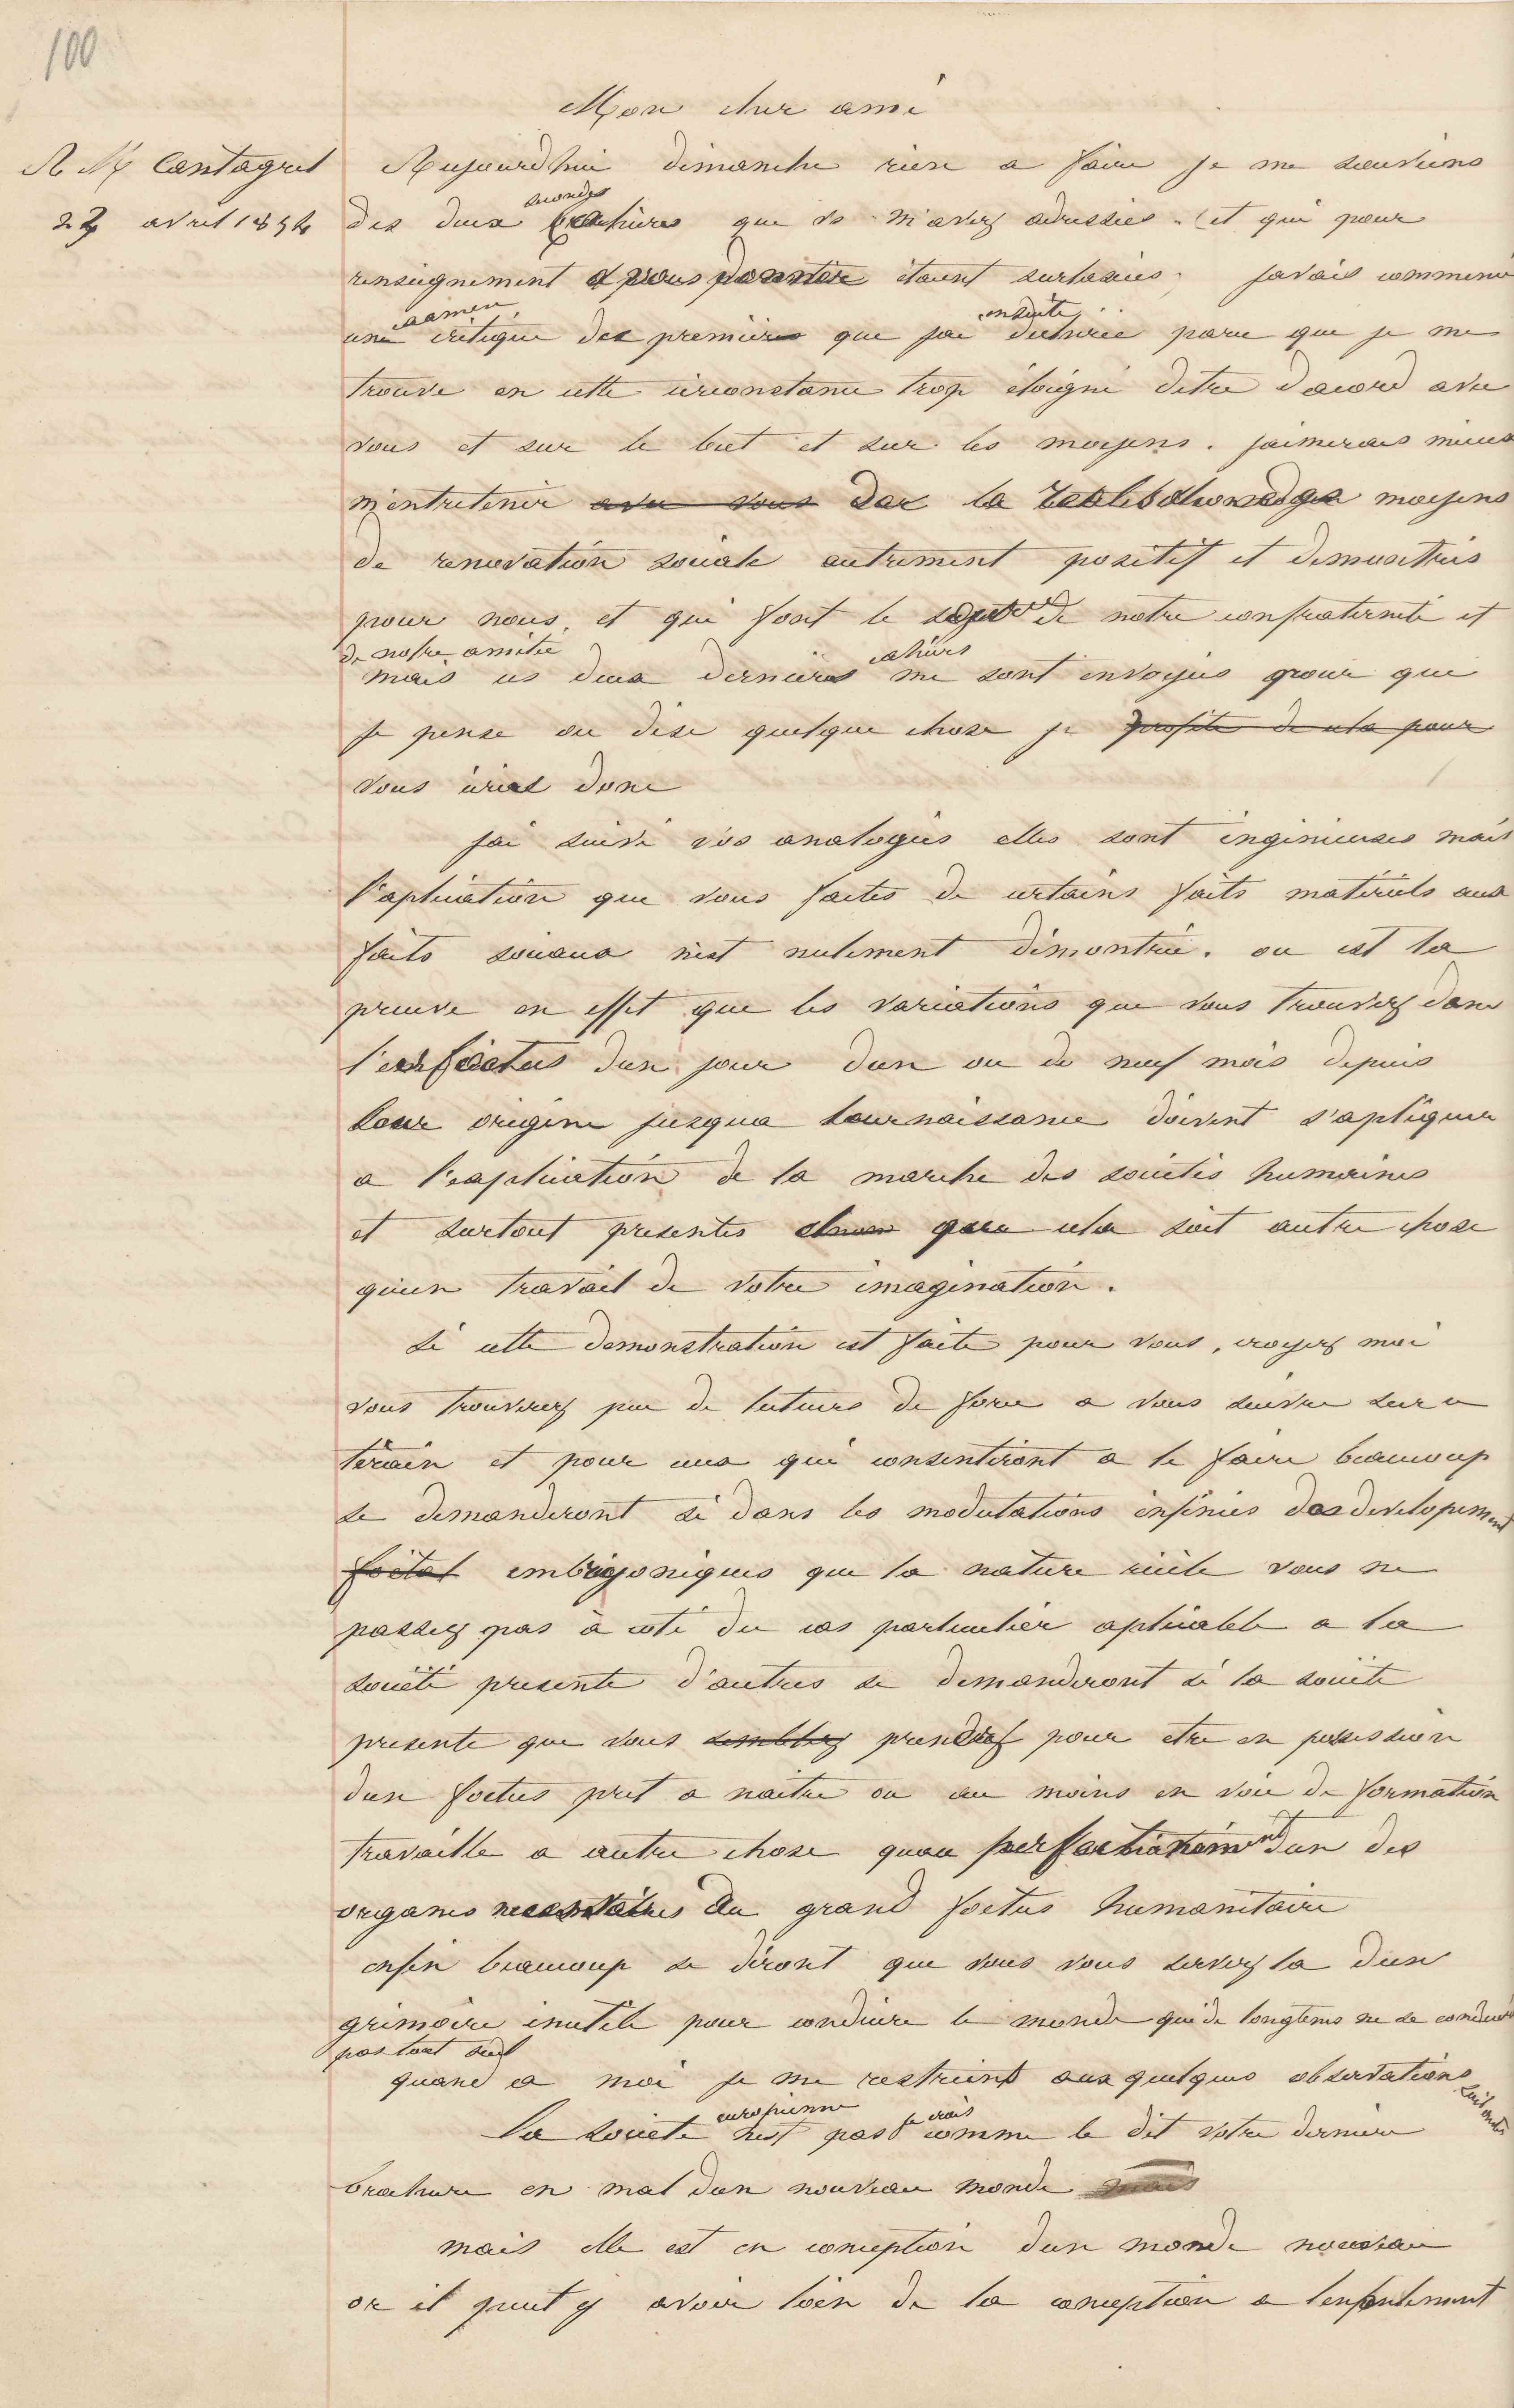 100
Mon cher ami
A Mr Cantagrel
27 avril 1854
Aujourdhui dimanche rien a faire je me souviens
secondes
des deux brochures que v. m'avez adressées et qui pour
renseignement étaient surtaxées. javais commencé
examen
ensuite
une critique des premières que jai dechirée parce que je me
trouve en cette circonstance trop éloigné detre daccord avec
vous et sur le but et sur les moyens. jaimerais mieux
m'entretenir avec vous des moyens
de renovation sociale autrement positifs et demontrés
pour nous, et qui font le sujet de notre confraternité et
de notre amitié
cahiers
mais ces deux dernières me sont envoyés pour que
je pense ou dise quelque chose je profite de cela pour
vous écris donc
jai suivi vos analogies elles sont ingenieuses mais
l'aplication que vous faites de certains faits matériels aux
faits sociaux nest nulement démontrée. ou est la
preuve en effet que les variations que vous trouvez dans
dun jour dun ou de neuf mois depuis
leur origine jusqua leur naissance doivent s'apliquer
a l'explication de la marche des societés humaines
et surtout presentes que cela soit autre chose
qu'un travail de votre imagination.
Si cette demonstration est faite pour vous, croyez moi
vous trouverez peu de lecteurs de force a vous suivre sur ce
terain et pour ceux qui consentiront a le faire beaucoup
se demanderont si dans les modulations infinies des developement
foetal embryoniques que la nature recèle vous ne
passez pas à coté du cas particulier aplicable a la
société presente d'autres se demanderont si la société
presente que vous semblez prendre pour etre en possession
dun foetus pret a naitre ou au moins en voie de formation
travaille a autre chose quau perfectionement dun des
organes necessaires du grand foetus humanitaire
enfin beaucoup se diront que vous vous servez la dun
grimoire inutile pour conduire le monde qui de longtems ne se conduit
pas tout seul
quand a moi je me restreint aux quelques observations
suivantes
européenne
je crois
La societe nest pas comme le dit votre derniere
brochure en mal dun nouveau monde mais
mais elle est en conception dun monde nouveau
or il peut y avoir loin de la conception a lenfantement